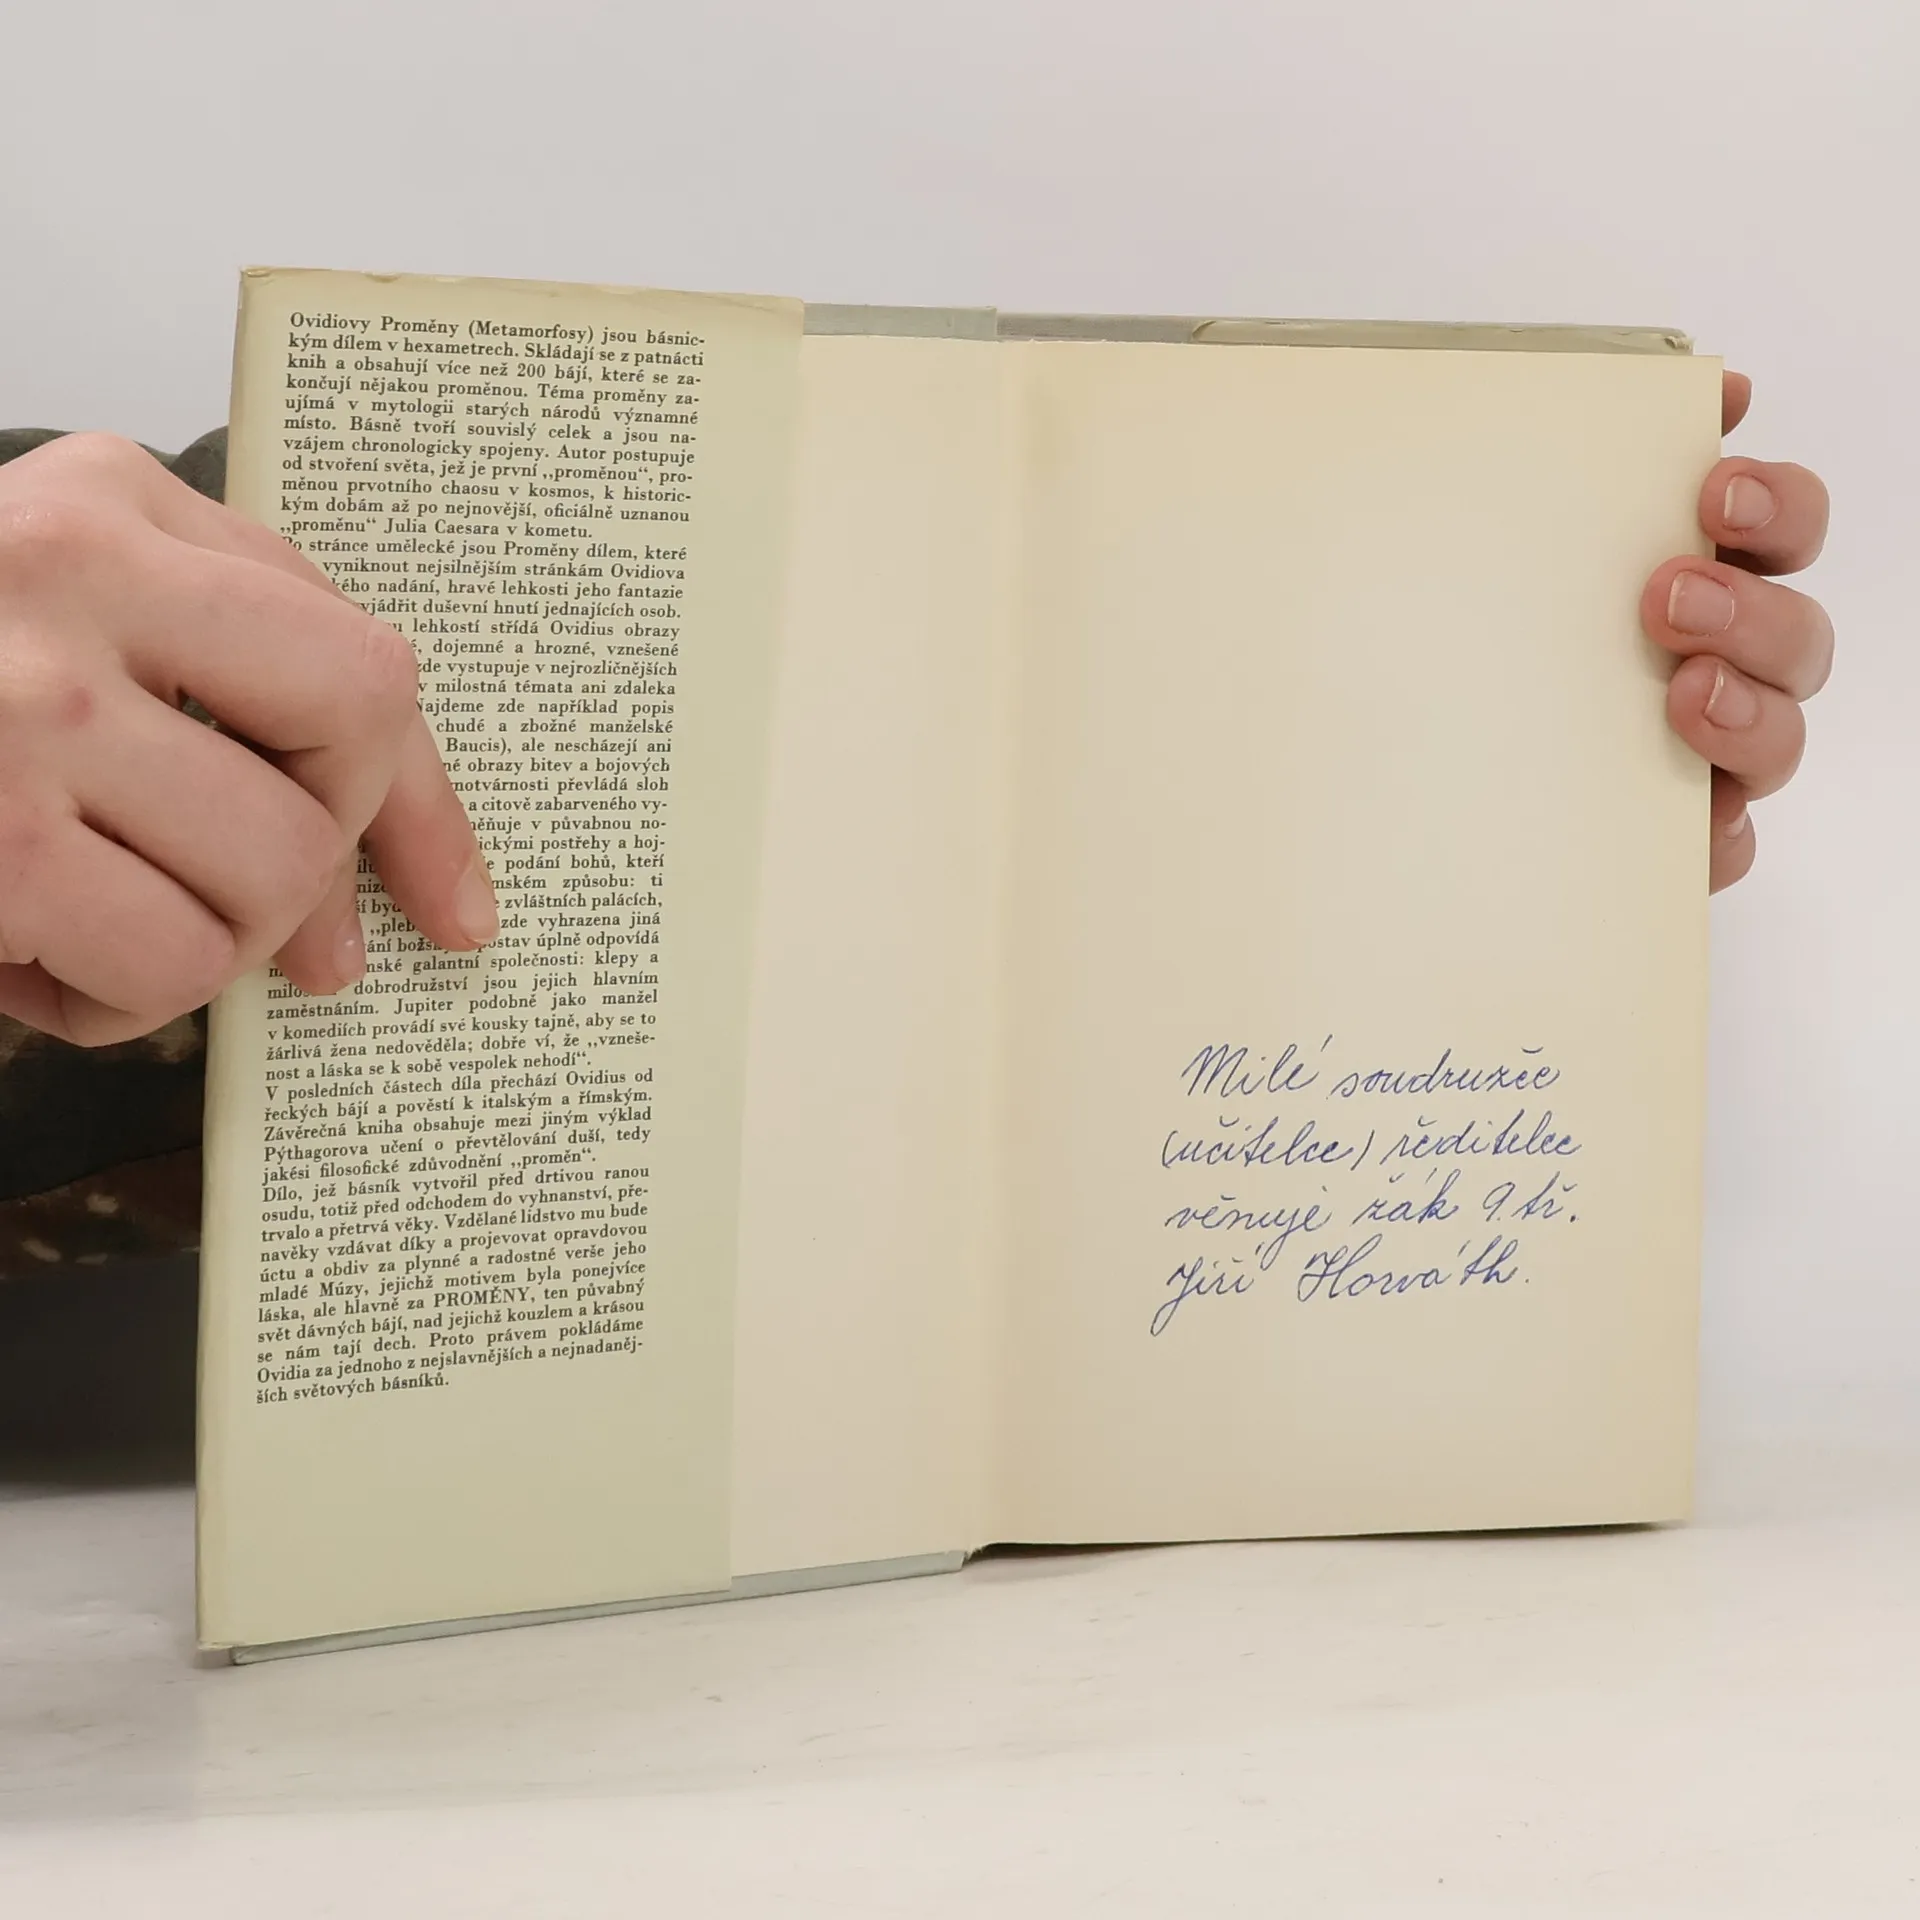 Ovidiovy Proměny (Metamorfosy) jsou básnic-
kým dílem v hexametrech. Skládají se z patnácti
knih a obsahují více než 200 bájí, které se za-
končují nějakou proměnou. Téma proměny za-
ujímá v mytologii starých národů významné
místo. Básně tvoří souvislý celek a jsou na-
vzájem chronologicky spojeny. Autor postupuje
od stvoření světa, jež je první „proměnou“, pro-
měnou prvotního chaosu v kosmos, k historic-
kým dobám až po nejnovější, oficiálně uznanou
„proměnu“ Julia Caesara v kometu.
Po stránce umělecké jsou Proměny dílem, které
vyniknout nejsilnějším stránkám Ovidiova
kého nadání, hravé lehkosti jeho fantazie
vyjádřit duševní hnutí jednajících osob.
lehkostí střídá Ovidius obrazy
dojemné a hrozné, vznešené
zde vystupuje v nejrozličnějších
milostná témata ani zdaleka
Najdeme zde například popis
chudé a zbožné manželské
Baucis), ale nescházejí ani
né obrazy bitev a bojových
notvárnosti převládá sloh
a citově zabarveného vy-
měňuje v půvabnou no-
ickými postřehy a hoj-
podání bohů, kteří
mském způsobu: ti
zvláštních palácích,
„pleb zde vyhrazena jiná
ání božs postav úplně odpovídá
nské galantní společnosti: klepy a
milos dobrodružství jsou jejich hlavním
zaměstnáním. Jupiter podobně jako manžel
v komediích provádí své kousky tajně, aby se to
žárlivá žena nedověděla; dobře ví, že „vzneše-
nost a láska se k sobě vespolek nehodí“.
V posledních částech díla přechází Ovidius od
řeckých bájí a pověstí k italským a římským.
Závěrečná kniha obsahuje mezi jiným výklad
Pýthagorova učení o převtělování duší, tedy
jakési filosofické zdůvodnění „proměn“.
Dílo, jež básník vytvořil před drtivou ranou
osudu, totiž před odchodem do vyhnanství, pře-
trvalo a přetrvá věky. Vzdělané lidstvo mu bude
navěky vzdávat díky a projevovat opravdovou
úctu a obdiv za plynné a radostné verše jeho
mladé Múzy, jejichž motivem byla ponejvíce
láska, ale hlavně za PROMĚNY, ten půvabný
svět dávných bájí, nad jejichž kouzlem a krásou
se nám tají dech. Proto právem pokládáme
Ovidia za jednoho z nejslavnějších a nejnadaněj-
ších světových básníků.
Milé soudružce
(učitelce) ředitelce
věnuje žák 9. tř.
Jiří Horváth.